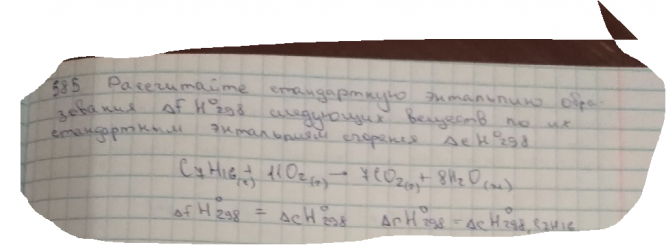 585 Рассчитайте стандартную энтальпию обра-
зования ΔfH°298 следующих веществ по их
стандартным энтальпиям сгорания ΔcH°298
C7H16(г) + 11O2(г) → 7CO2(г) + 8H2O(ж)
ΔfH°298 = ΔcH°298 ΔrH°298 = ΔcH°298, C7H16